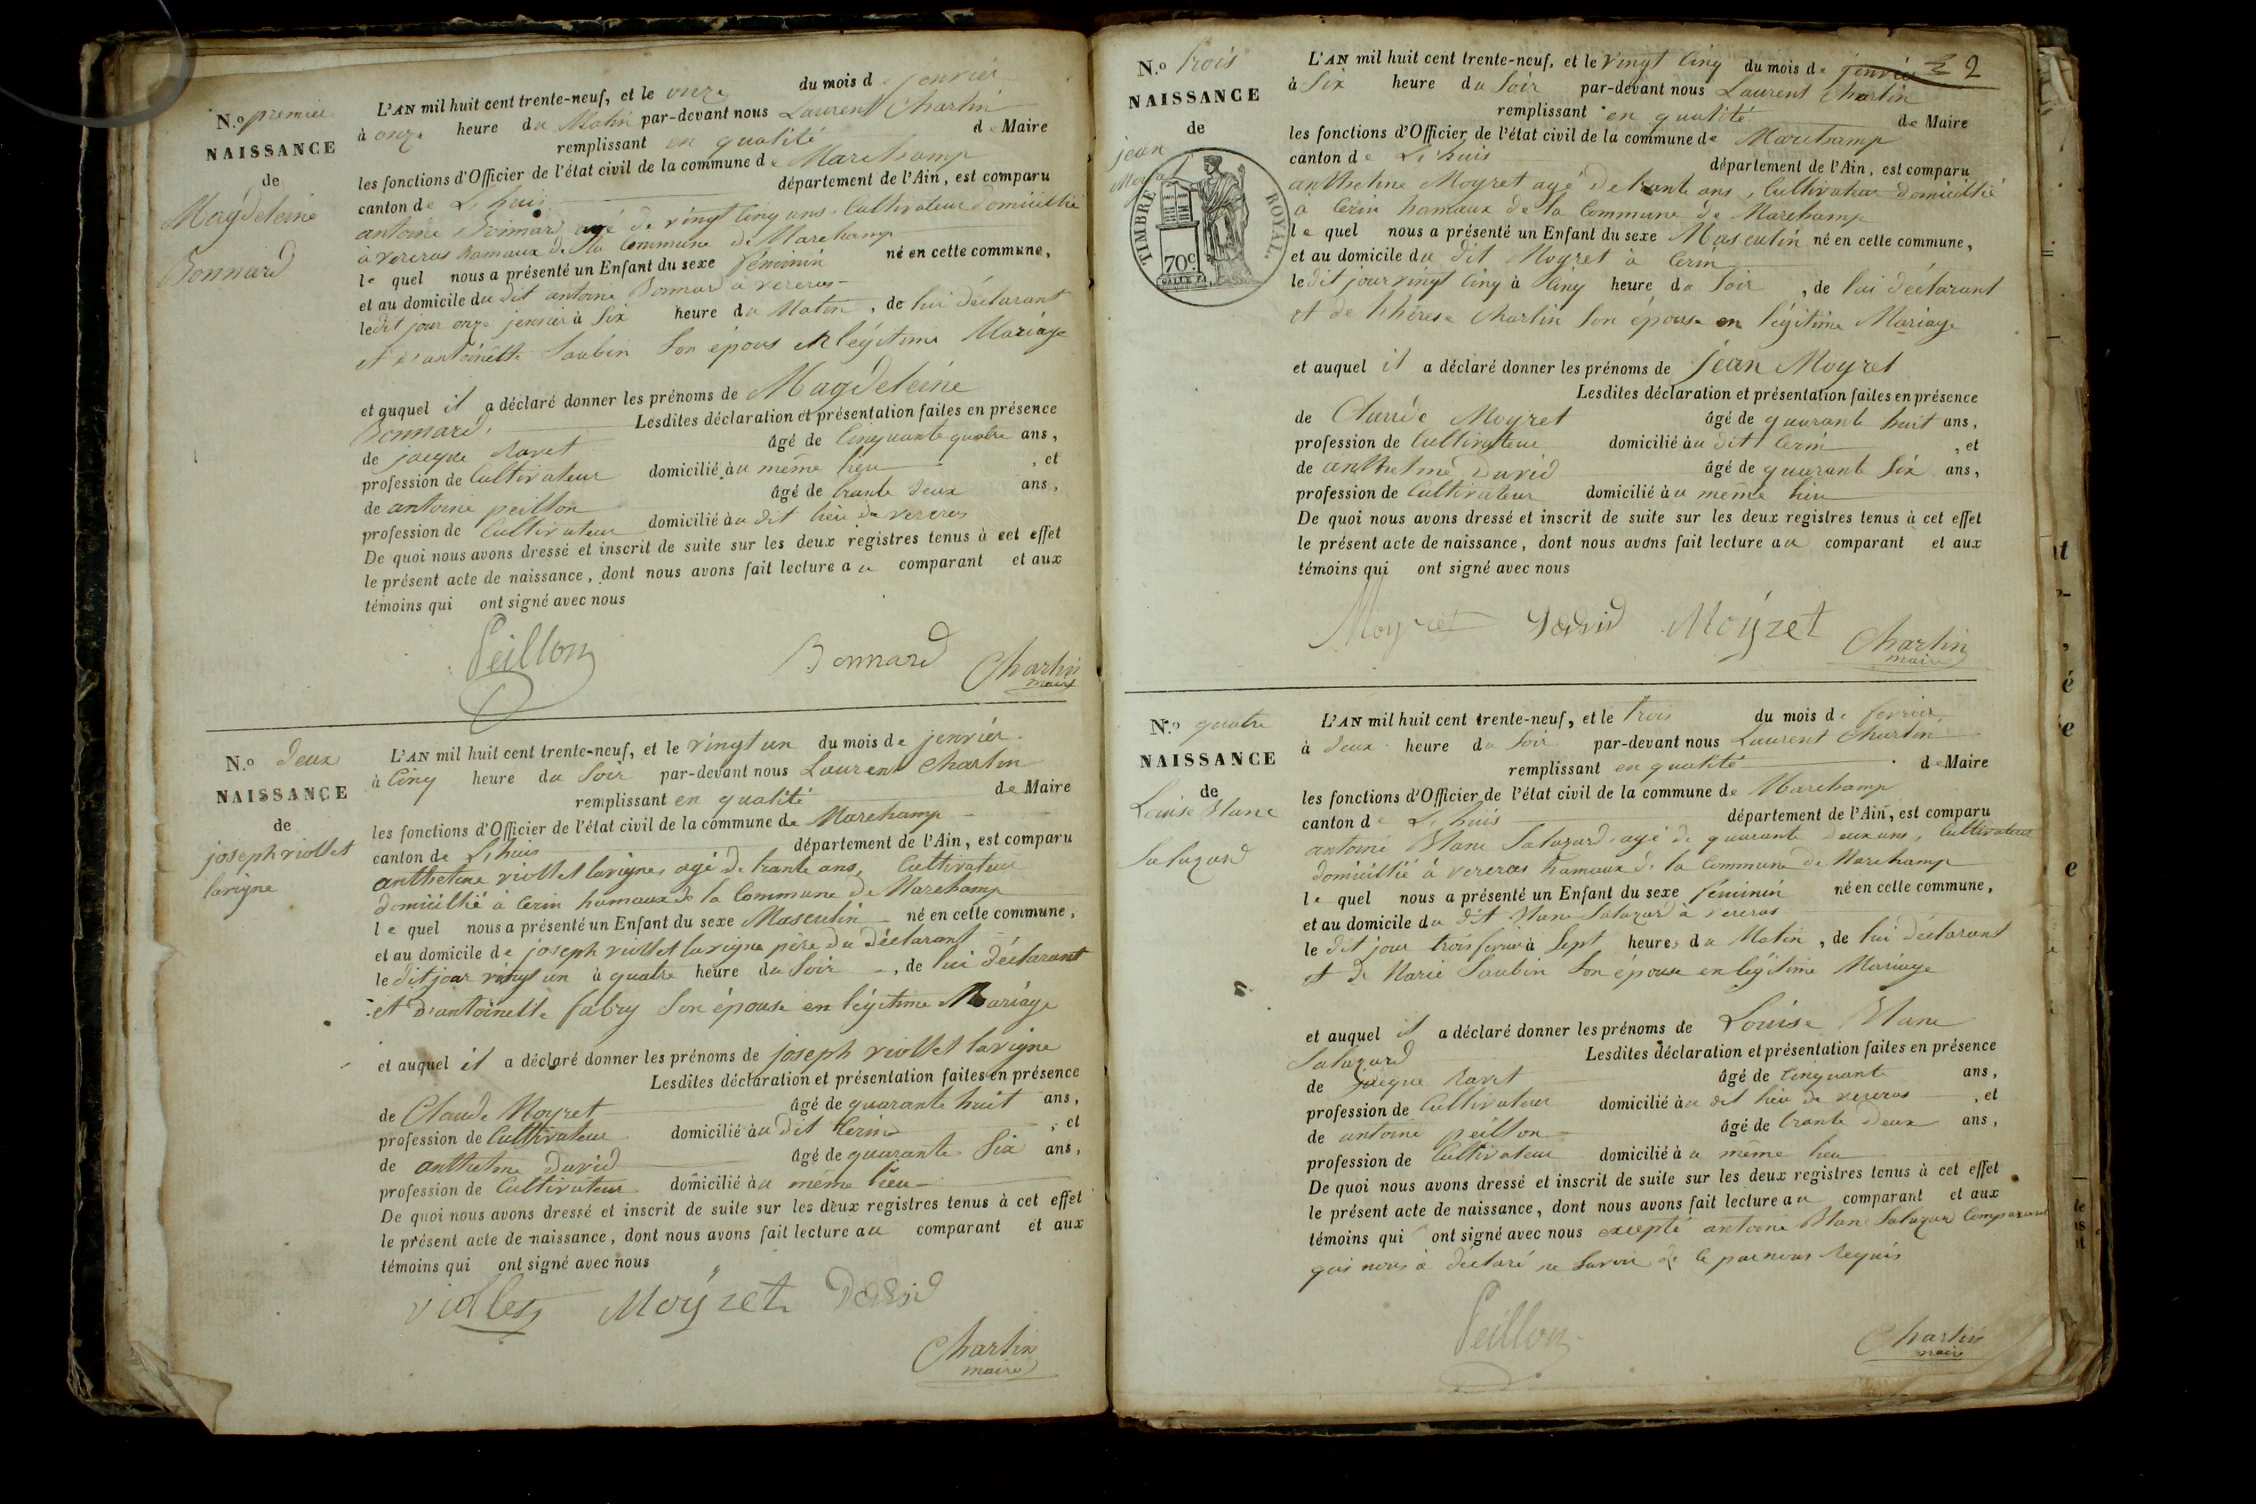 N.o premier
NAISSANCE
de
Magdeleine
Bonnard
L'AN mil huit cent trente-neuf, et le onze du mois de jenvier
à onze heure du Matin par-devant nous Laurent Chartin
remplissant en qualité de Maire
les fonctions d'Officier de l'état civil de la commune de Marchamp
canton de L'huis département de l'Ain, est comparu
antoine Bonnard agé de vingt Cinq ans, Cultivateur domicillié
à vereras hamaux de la Commune de Marchamp
le quel nous a présenté un Enfant du sexe féminin né en cette commune,
et au domicile du dit antoine Bonnard à vereras
le dit jour onze jenvier à Six heure du Matin, de lui déclarant
et d'antoinette Saubin Son épous en légitime Mariage
et auquel il a déclaré donner les prénoms de Magdeleine
Bonnard. Lesdites déclaration et présentation faites en présence
de jacque Ravet âgé de Cinquante quatre ans,
profession de Cultivateur domicilié au même lieu, et
de antoine peillon âgé de trante deux ans,
profession de Cultivateur domicilié au dit lieu de vereras
De quoi nous avons dressé et inscrit de suite sur les deux registres tenus à cet effet
le présent acte de naissance, dont nous avons fait lecture au comparant et aux
témoins qui ont signé avec nous
Peillon Bonnard Chartin
maire
N.o deux
NAISSANCE
de
joseph viollet
lavigne
L'AN mil huit cent trente-neuf, et le vingt un du mois de jenvier
à Cinq heure du Soir par-devant nous Laurent Chartin
remplissant en qualité de Maire
les fonctions d'Officier de l'état civil de la commune de Marchamp
canton de L'huis département de l'Ain, est comparu
anthelme viollet lavigne, agé de trante ans, Cultivateur
domicillié à Cerin hamaux de la Commune de Marchamp
le quel nous a présenté un Enfant du sexe Masculin né en cette commune,
et au domicile de joseph viollet lavigne père du déclarant
le dit jour vingt un à quatre heure du Soir, de lui déclarant
et d'antoinette fabry Son épouse en légitime Mariage
et auquel il a déclaré donner les prénoms de joseph viollet lavigne
Lesdites déclaration et présentation faites en présence
de Claude Moyret âgé de quarante huit ans,
profession de Cultivateur domicilié au dit Cerin, et
de anthelme David âgé de quarante Six ans,
profession de Cultivateur domicilié au même lieu
De quoi nous avons dressé et inscrit de suite sur les deux registres tenus à cet effet
le présent acte de naissance, dont nous avons fait lecture au comparant et aux
témoins qui ont signé avec nous
viollet Moyret David
Chartin
maire
2
N.o trois
NAISSANCE
de
jean
Moyret
TIMBRE ROYAL.
70c
L'AN mil huit cent trente-neuf, et le vingt Cinq du mois de jenvier
à Six heure du Soir par-devant nous Laurent Chartin
remplissant en qualité de Maire
les fonctions d'Officier de l'état civil de la commune de Marchamp
canton de L'huis département de l'Ain, est comparu
anthelme Moyret agé de trante ans, Cultivateur domicillié
à Cerin hamaux de la Commune de Marchamp
le quel nous a présenté un Enfant du sexe Masculin né en cette commune,
et au domicile du dit Moyret à Cerin
le dit jour vingt Cinq à Cinq heure du Soir, de lui déclarant
et de thérèse Chartin Son épouse en légitime Mariage
et auquel il a déclaré donner les prénoms de jean Moyret
Lesdites déclaration et présentation faites en présence
de Claude Moyret âgé de quarante huit ans,
profession de Cultivateur domicilié au dit Cerin, et
de anthelme David âgé de quarante Six ans,
profession de Cultivateur domicilié au même lieu
De quoi nous avons dressé et inscrit de suite sur les deux registres tenus à cet effet
le présent acte de naissance, dont nous avons fait lecture au comparant et aux
témoins qui ont signé avec nous
Moyret David Moyret Chartin
maire
N.o quatre
NAISSANCE
de
Louise Blanc
Salazard
L'AN mil huit cent trente-neuf, et le trois du mois de fevrier
à deux heure du Soir par-devant nous Laurent Chartin
remplissant en qualité de Maire
les fonctions d'Officier de l'état civil de la commune de Marchamp
canton de L'huis département de l'Ain, est comparu
antoine Blanc Salazard, agé de quarante deux ans, Cultivateur
domicillié à vereras hamaux de la Commune de Marchamp
le quel nous a présenté un Enfant du sexe féminin né en cette commune,
et au domicile du dit Blanc Salazard à vereras
le dit jour trois fevrier à Sept heures du Matin, de lui déclarant
et de Marie Saubin Son épouse en légitime Mariage
et auquel il a déclaré donner les prénoms de Louise Blanc
Salazard Lesdites déclaration et présentation faites en présence
de jacque Ravet âgé de Cinquante ans,
profession de Cultivateur domicilié au dit lieu de vereras, et
de antoine peillon âgé de trante deux ans,
profession de Cultivateur domicilié au même lieu
De quoi nous avons dressé et inscrit de suite sur les deux registres tenus à cet effet
le présent acte de naissance, dont nous avons fait lecture au comparant et aux
témoins qui ont signé avec nous excepté antoine Blanc Salazard Comparant
qui nous à déclaré ne Savoir de ce par nous Requis
Peillon Chartin
maire